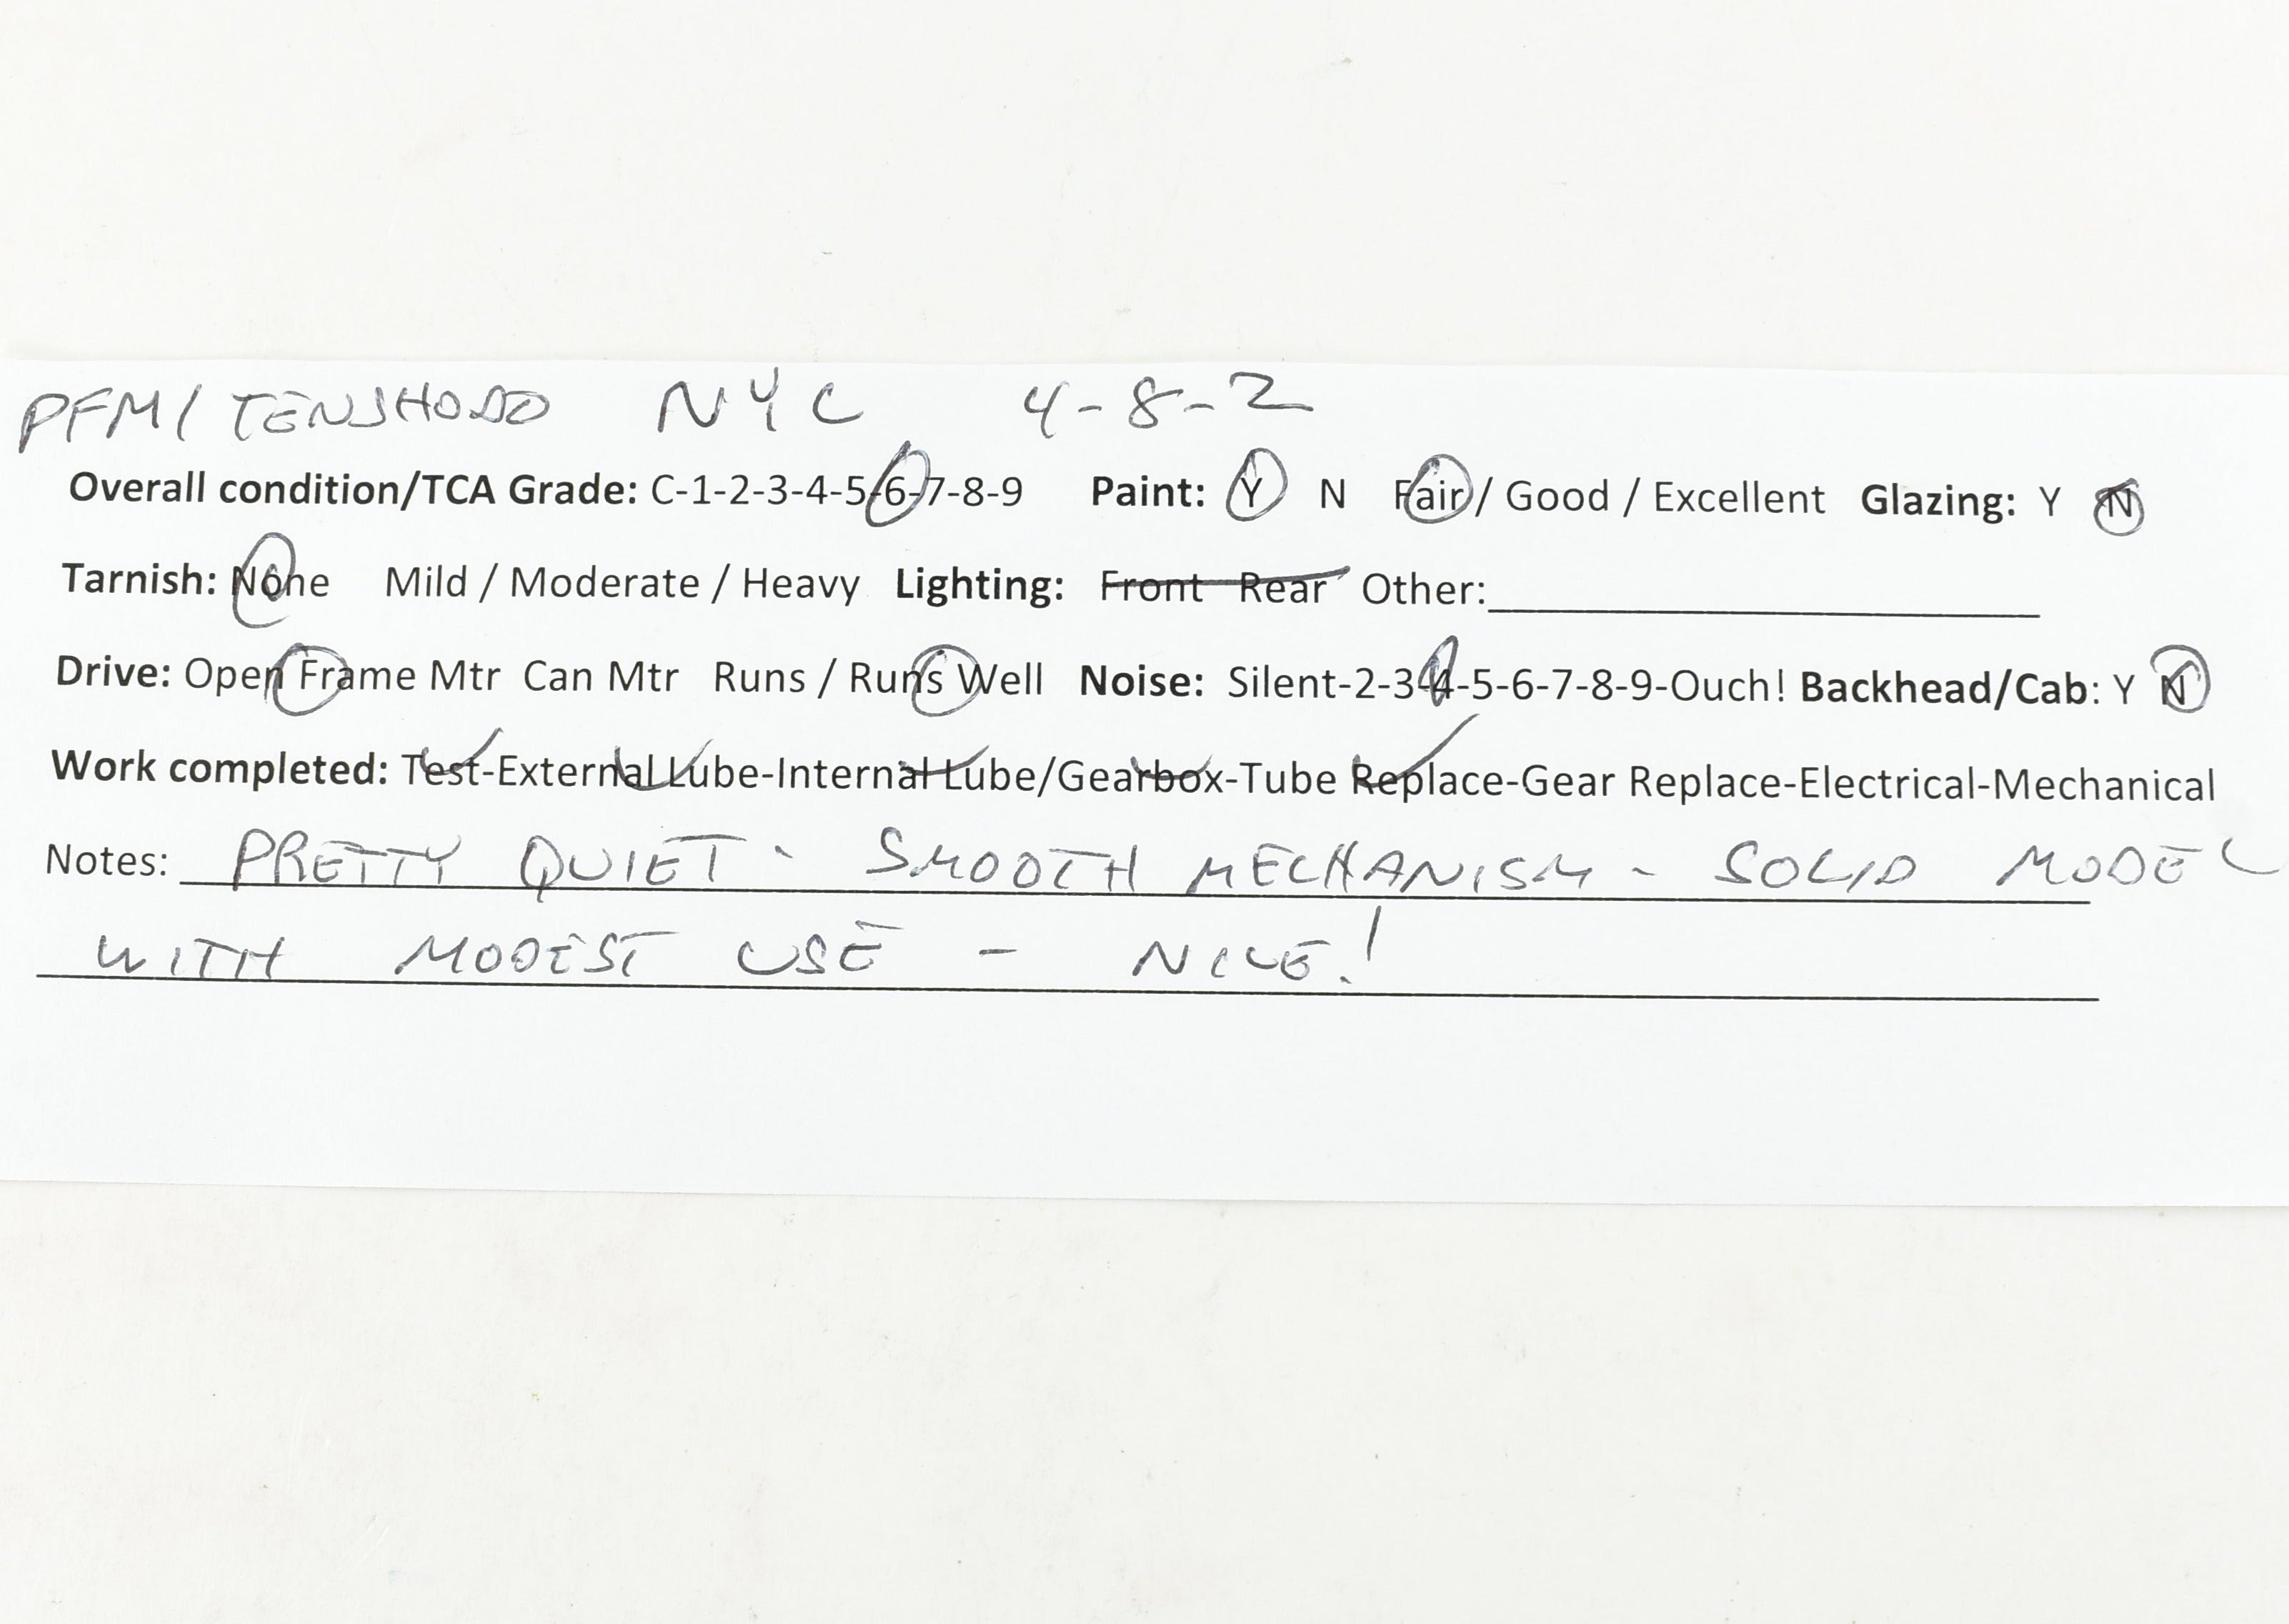 PFM/TENSHODO NYC 4-8-2
Overall condition/TCA Grade: C-1-2-3-4-5-6-7-8-9 Paint: Y N Fair / Good / Excellent Glazing: Y N
Tarnish: None Mild / Moderate / Heavy Lighting: Front Rear Other:
Drive: Open Frame Mtr Can Mtr Runs / Runs Well Noise: Silent-2-3-4-5-6-7-8-9-Ouch! Backhead/Cab: Y N
Work completed: Test-External Lube-Internal Lube/Gearbox-Tube Replace-Gear Replace-Electrical-Mechanical
Notes: PRETTY QUIET - SMOOTH MECHANISM - SOLID MODEL
WITH MODEST USE - NICE!